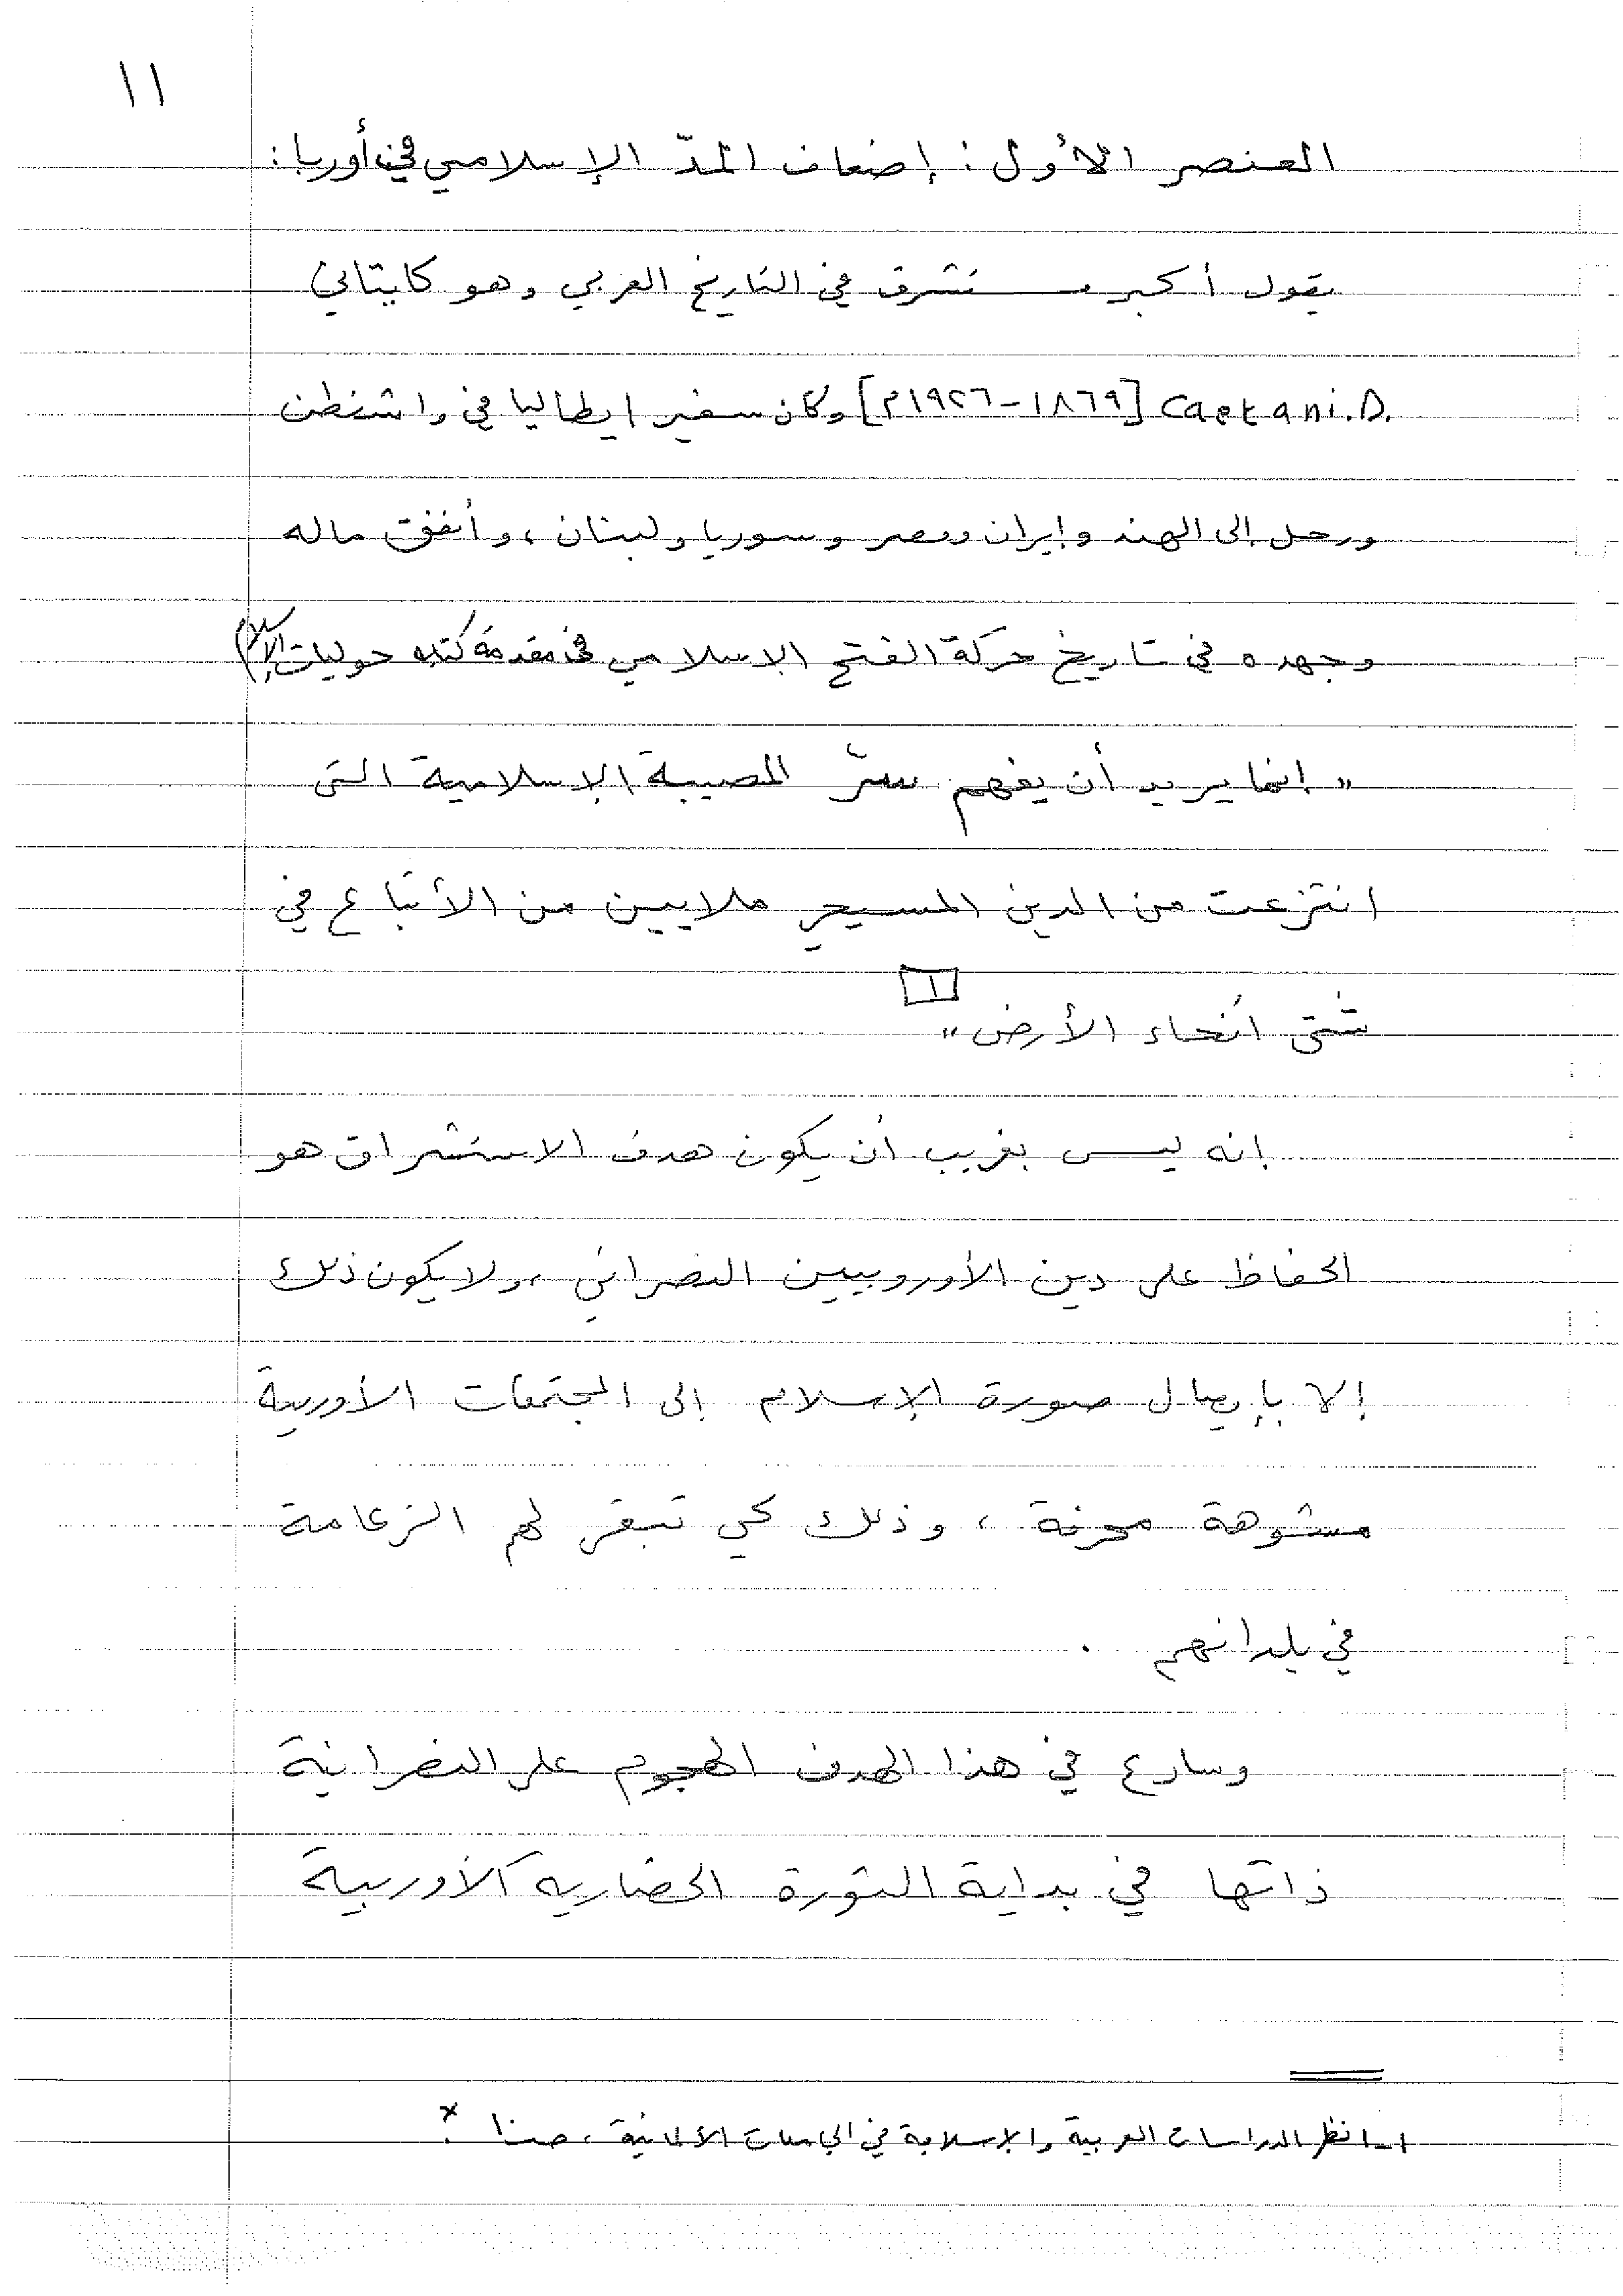 ١١
العنصر الأول : إضعاف المدّ الإسلامي في أوربا :
يقول أكبر مستشرق في التاريخ العربي وهو كايتاني
Caetani.D. [١٨٦٩-١٩٢٦م] وكان سفير ايطاليا في واشنطن
ورحل إلى الهند وإيران ومصر وسوريا ولبنان ، وأنفق ماله
وجهده في تاريخ حركة الفتح الاسلامي في مقدمة كتابه حوليات الإسلام
" إنما يريد أن يفهم سرّ المصيبة الإسلامية التي
انتزعت من الدين المسيحي ملايين من الأتباع في
شتى أنحاء الأرض " [١]
إنه ليس بغريب أن يكون هدف الاستشراق هو
الحفاظ على دين الأوروبيين النصراني ، ولا يكون ذلك
إلا بإيصال صورة الإسلام إلى المجتمعات الأوربية
مشوهة محرفة ، وذلك كي تبقى لهم الزعامة
في بلدانهم .
وسارع في هذا الهدف الهجوم على النصرانية
ذاتها في بداية الثورة الحضارية الأوربية
١- انظر الدراسات العربية والإسلامية في الجامعات الألمانية ،